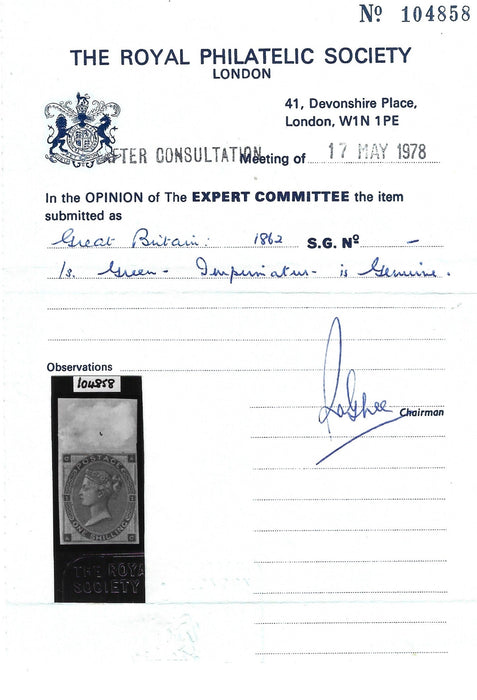 Nº 104858
THE ROYAL PHILATELIC SOCIETY
LONDON
41, Devonshire Place,
London, W1N 1PE
AFTER CONSULTATION Meeting of 17 MAY 1978
In the OPINION of The EXPERT COMMITTEE the item
submitted as
Great Britain: 1862 S.G. Nº -
1s. Green - Imperimatur - is Genuine.
Observations
104858
Chairman
POSTAGE
ONE SHILLING
THE ROYA
SOCIETY